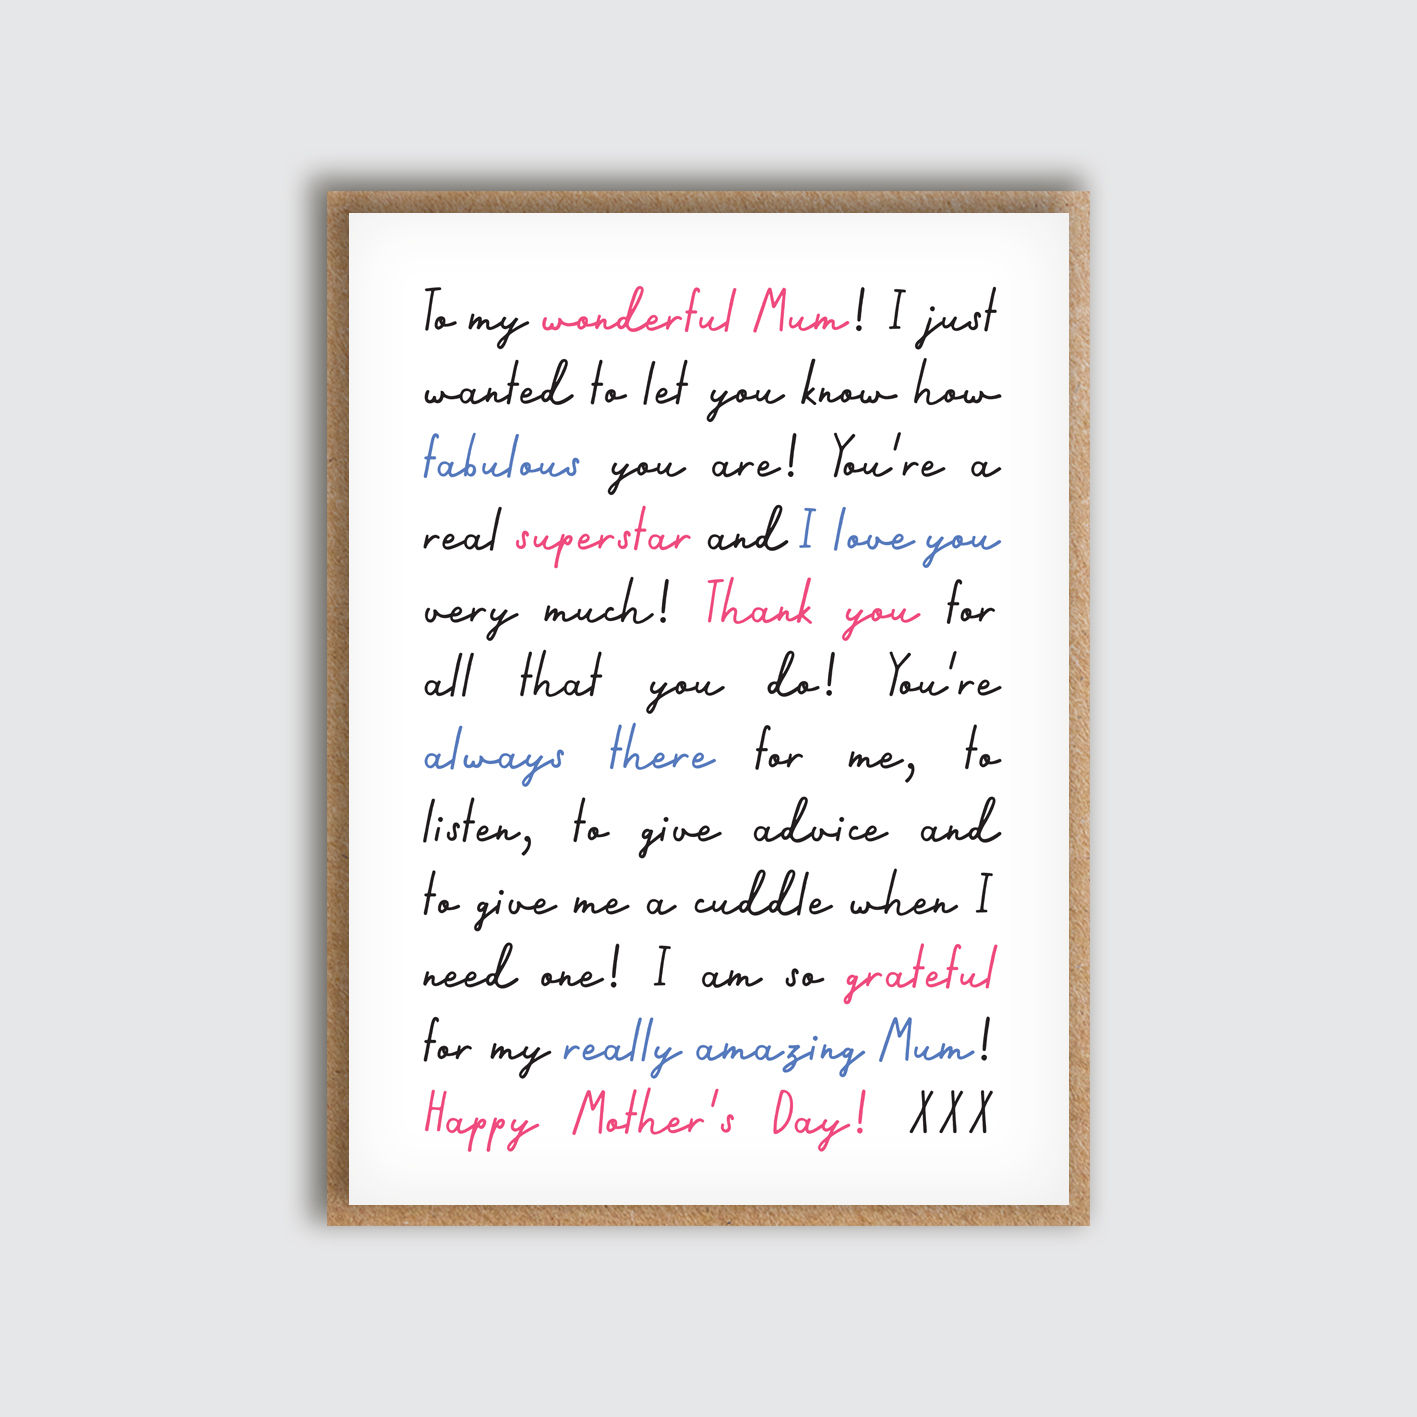 To my wonderful Mum! I just
wanted to let you know how
fabulous you are! You're a
real superstar and I love you
very much! Thank you for
all that you do! You're
always there for me, to
listen, to give advice and
to give me a cuddle when I
need one! I am so grateful
for my really amazing Mum!
Happy Mother's Day! XXX